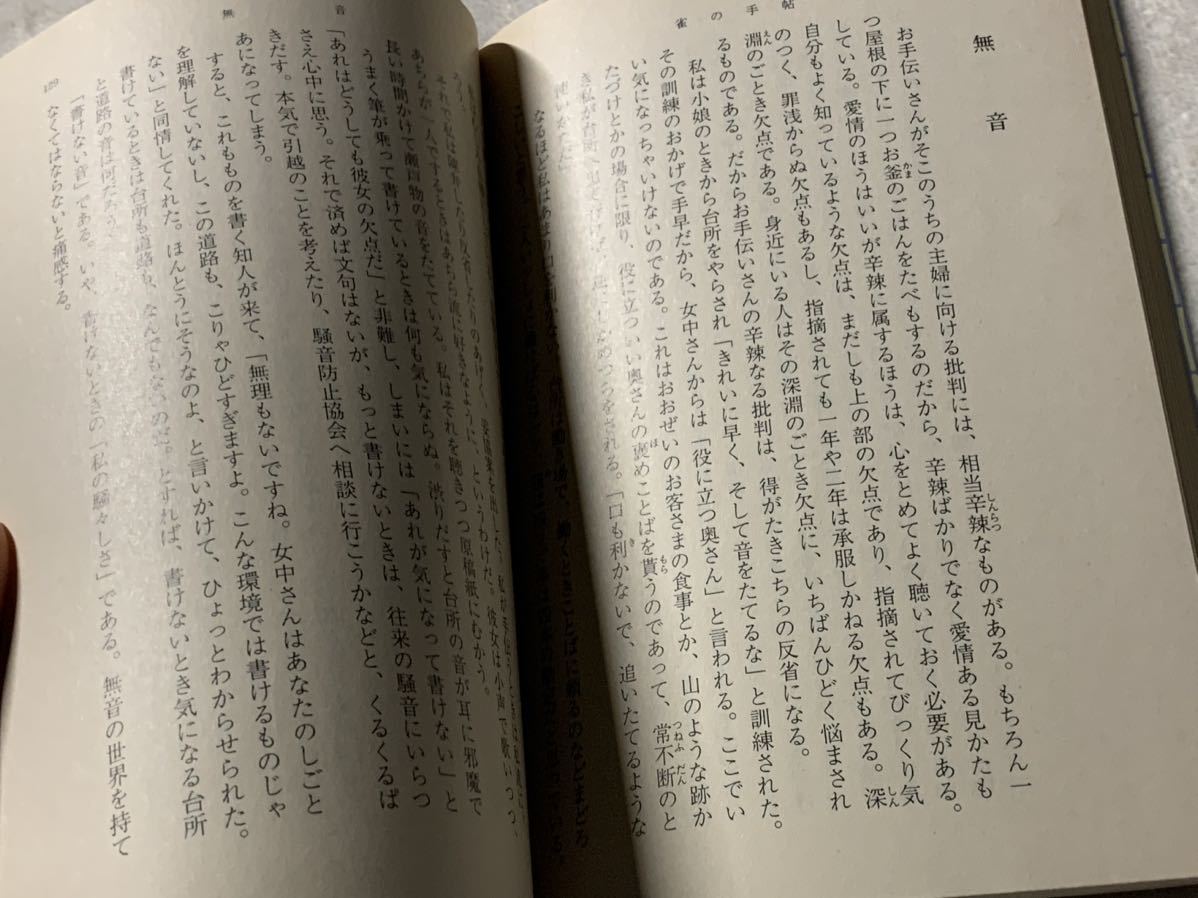 雀の手帖
無音
お手伝いさんがそこのうちの主婦に向ける批判には、相当辛辣なものがある。もちろん一
つ屋根の下に一つお釜のごはんをたべもするのだから、辛辣ばかりでなく愛情ある見かたも
している。愛情のほうはいいが辛辣に属するほうは、心をとめてよく聴いておく必要がある。
自分もよく知っているような欠点は、まだしも上の部の欠点であり、指摘されてびっくり気
のつく、罪浅からぬ欠点もあるし、指摘されても一年や二年は承服しかねる欠点もある。深
淵のごとき欠点である。身近にいる人はその深淵のごとき欠点に、いちばんひどく悩まされ
るものである。だからお手伝いさんの辛辣なる批判は、得がたきこちらの反省になる。
私は小娘のときから台所をやらされ「きれいに早く、そして音をたてるな」と訓練された。
その訓練のおかげで手早だから、女中さんからは「役に立つ奥さん」と言われる。ここでい
い気になっちゃいけないのである。これはおおぜいのお客さまの食事とか、山のような跡か
たづけとかの場合に限り、役に立ついい奥さんの褒めことばを貰うのであって、常不断のと
き私が台所へ
される。「口も利かないで、追いたてるような
使いかた」
なるほど私はあまり口を利かない。台所は働き場で、働くときことばに頼るのなどまどろ
無音
それで私は陳弁したり反省したりのあげく、妥協案を出した。
あちらが一人でするときはあちら流に好きなように、というわけだ。彼女は小声で歌いつつ、
長い時間かけて瀬戸物の音をたてている。私はそれを聴きつつ原稿紙にむかう。
うまく筆が乗って書けているときは何も気にならぬ。渋りだすと台所の音が耳に邪魔で
「あれはどうしても彼女の欠点だ」と非難し、しまいには「あれが気になって書けない」と
さえ心中に思う。それで済めば文句はないが、もっと書けないときは、往来の騒音にいらつ
きだす。本気で引越のことを考えたり、騒音防止協会へ相談に行こうかなどと、くるくるぱ
あになってしまう。
すると、これもものを書く知人が来て、「無理もないですね。女中さんはあなたのしごと
を理解していないし、この道路も、こりゃひどすぎますよ。こんな環境では書けるものじゃ
ない」と同情してくれた。ほんとうにそうなのよ、と言いかけて、ひょっとわからせられた。
書けているときは台所も道路も、なんでもないのだ。とすれば、書けないとき気になる台所
と道路の音は何だろう。
「書けない音」である。いや、書けないときの「私の騒々しさ」である。無音の世界を持て
なくてはならないと痛感する。
129